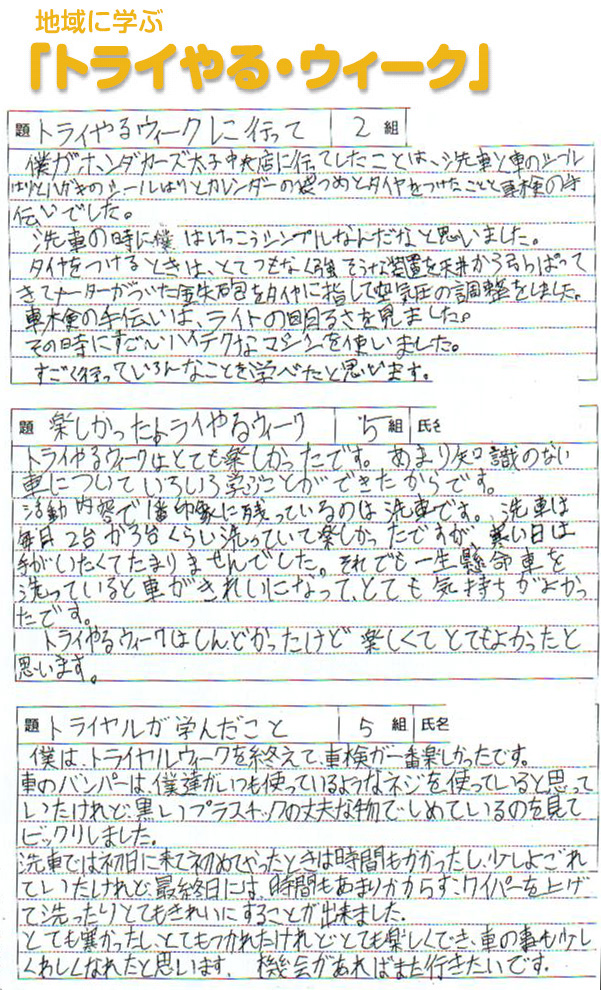 地域に学ぶ
「トライやる・ウィーク」
題 トライやるウィークに行って 2 組
僕がホンダカーズ太子中央店に行ってしたことは、洗車と車のシール
はりとハガキのシールはりとカレンダーの袋つめとタイヤをつけたことと車検の手
伝いでした。
洗車の時に僕はけっこうシンプルなんだなと思いました。
タイヤをつけるときは、とてつもなく強そうな装置を天井から引っぱって
きてメーターがついた鉄砲をタイヤに指して空気圧の調整をしました。
車検の手伝いは、ライトの明るさを見ました。
その時にすごいハイテクなマシーンを使いました。
すごく行っていろんなことを学べたと思います。
題 楽しかったトライやるウィーク 5 組 氏名
トライやるウィークはとても楽しかったです。あまり知識のない
車についていろいろ学ぶことができたからです。
活動内容で1番印象に残っているのは洗車です。洗車は
毎日2台か3台くらい洗っていて楽しかったですが、寒い日は
手がいたくてたまりませんでした。それでも一生懸命車を
洗っていると車がきれいになって、とても気持ちがよかっ
たです。
トライやるウィークはしんどかったけど楽しくてとてもよかったと
思います。
題 トライヤルが学んだこと 5 組 氏名
僕は、トライヤルウィークを終えて、車検が一番楽しかったです。
車のバンパーは、僕達がいつも使っているようなネジを使っていると思って
いたけれど、黒いプラスチックの丈夫な物でしめているのを見て
ビックリしました。
洗車では初日に来て初めてやったときは時間もかかったし、少しよごれ
ていたけれど、最終日には、時間もあまりかからず、ワイパーを上げ
て洗ったりとてもきれいにすることが出来ました。
とても寒かったし、とてもつかれたけれど、とても楽しくでき、車の事も少し
くわしくなれたと思います。 機会があればまた行きたいです。